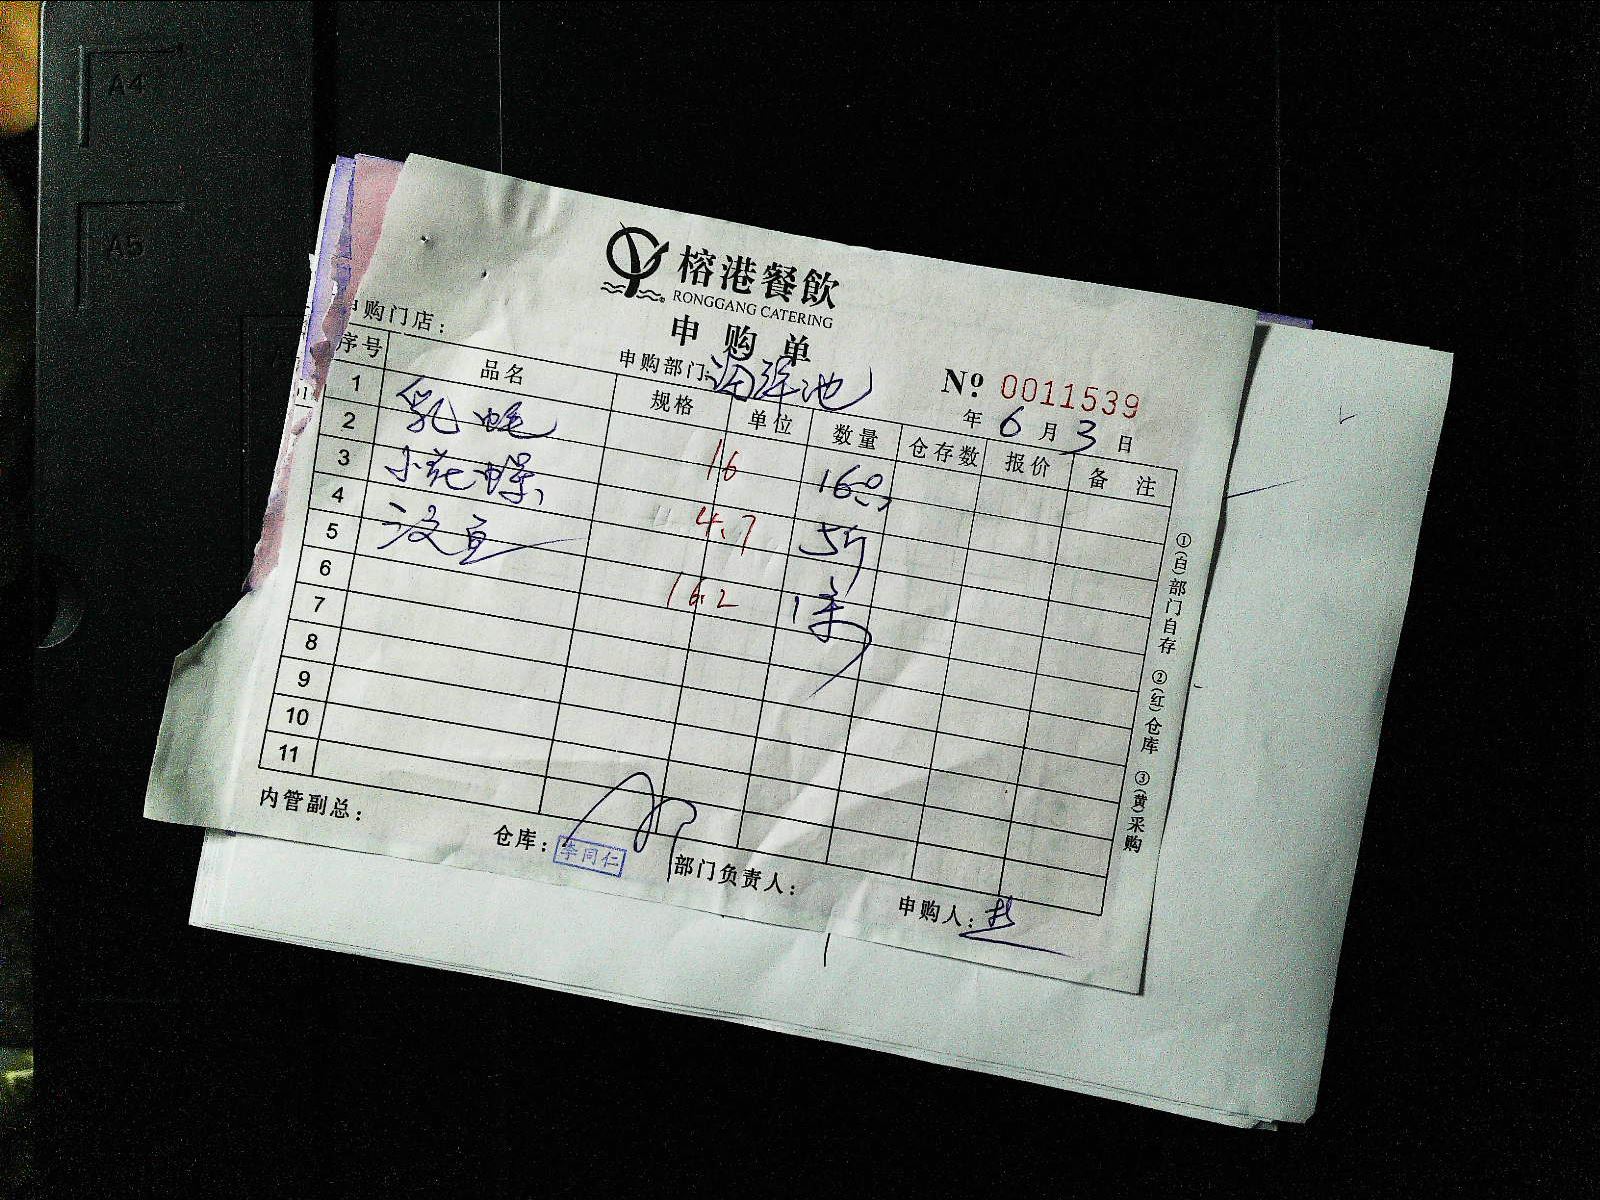 A4
A5
榕港餐飲
RONGGANG CATERING
申购单
申购门店：
申购部门：海鲜池
№ 0011539
年 6 月 3 日
序号 品名 规格 单位 数量 仓存数 报价 备注
1
2
3
4
5
6
7
8
9
10
11
16
小花螺
4.7 5斤
16.2 1条
内管副总：
仓库：
李同仁
部门负责人：
申购人：
①(白)部门自存 ②(红)仓库 ③(黄)采购